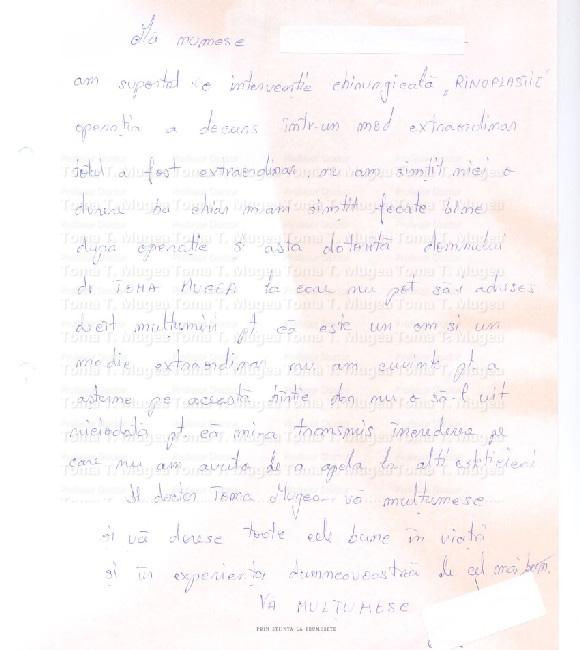 Mă numesc
am suportat o intervenție chirurgicală „RINOPLASTIE"
operația a decurs într-un mod extraordinar
totul a fost extraordinar, nu am simțit nici o
durere ba chiar m-am simțit foarte bine
după operație și asta datorită domnului
dr. TOMA MUGEA la care nu pot să-i aduc
decît mulțumiri pt că este un om și un
medic extraordinar nu am cuvinte pt. a
așterne pe această hîrtie dar nu o să-l uit
niciodată pt. că mi-a transmis încrederea pe
care nu am avut-o de a apela la alți esteticieni
Dl doctor Toma Mugea vă mulțumesc
și vă doresc toate cele bune în viață
și în experiența dumneavoastră de cel mai bun.
VĂ MULȚUMESC
PRIN ȘTIINȚĂ LA FRUMUSEȚE
Profesor Doctor
Toma T. Mugea